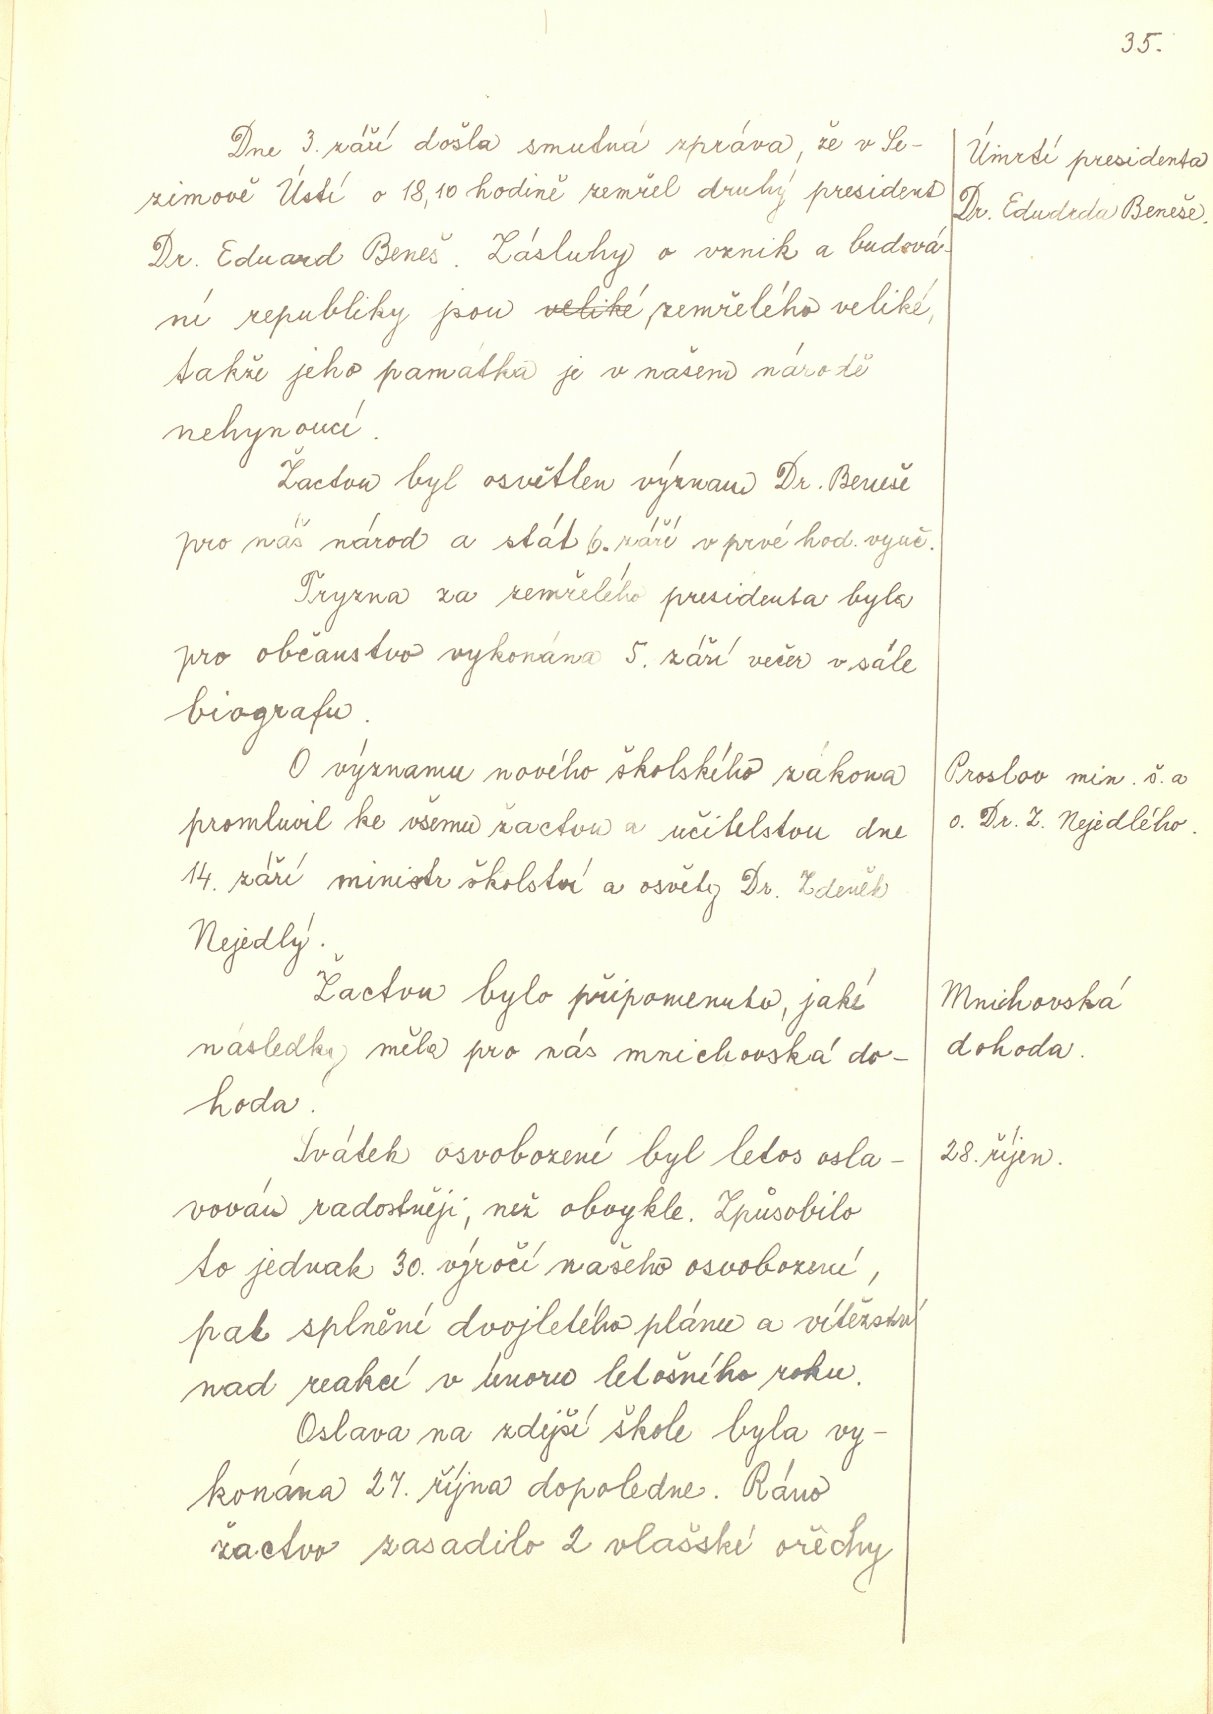 35.
Dne 3. září došla smutná zpráva, že v Se-
zimově Ústí o 18,10 hodině zemřel druhý president
Dr. Eduard Beneš. Zásluhy o vznik a budová-
ní republiky jsou veliké, zemřelého veliké,
takže jeho památka je v našem národě
nehynoucí.
Žactvu byl osvětlen význam Dr. Beneše
pro náš národ a stát 6. září v prvé hod. vyuč.
Tryzna za zemřelého presidenta byla
pro občanstvo vykonána 5. září večer v sále
biografu.
O významu nového školského zákona
promluvil ke všemu žactvu a učitelstvu dne
14. září ministr školství a osvěty Dr. Zdeněk
Nejedlý.
Žactvu bylo připomenuto, jaké
následky měla pro nás mnichovská do-
hoda.
Svátek osvobození byl letos osla-
vován radostněji, než obvykle. Způsobilo
to jednak 30. výročí našeho osvobození,
pak splnění dvojletého plánu a vítězství
nad reakcí v únoru letošního roku.
Oslava na zdejší škole byla vy-
konána 27. října dopoledne. Ráno
žactvo zasadilo 2 vlašské ořechy
Úmrtí presidenta
Dr. Eduarda Beneše.
Proslov min. š. a
o. Dr. Z. Nejedlého.
Mnichovská
dohoda.
28. říjen.